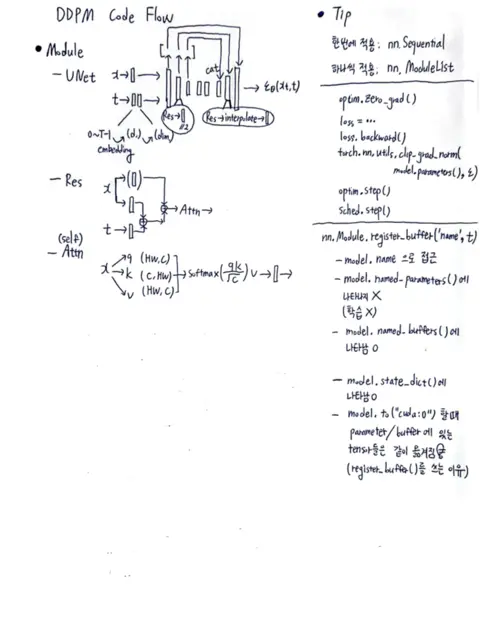 DDPM Code Flow
• Module
– UNet
x→
t→
cat
→ ε_θ(xt,t)
Res→
×2
Res→interpolate→
0~T-1 (d₁) (dim)
embedding
– Res
x
t→
→Attn→
(self)
– Attn
x
q (HW,C)
k (C,HW)
v (HW,C)
→softmax(qk/√C) v→
• Tip
한번에 적용: nn.Sequential
하나씩 적용: nn.ModuleList
optim.zero_grad()
loss = ...
loss.backward()
torch.nn.utils.clip_grad_norm(
model.parameters(), ε)
optim.step()
sched.step()
nn.Module.register_buffer('name', t)
– model.name 으로 접근
– model.named_parameters()에
나타나지 X
(학습 X)
– model.named_buffers()에
나타남 O
– model.state_dict()에
나타남 O
– model.to("cuda:0") 할 때
parameter/buffer에 있는
tensor들은 같이 옮겨짐
(register_buffer()를 쓰는 이유)